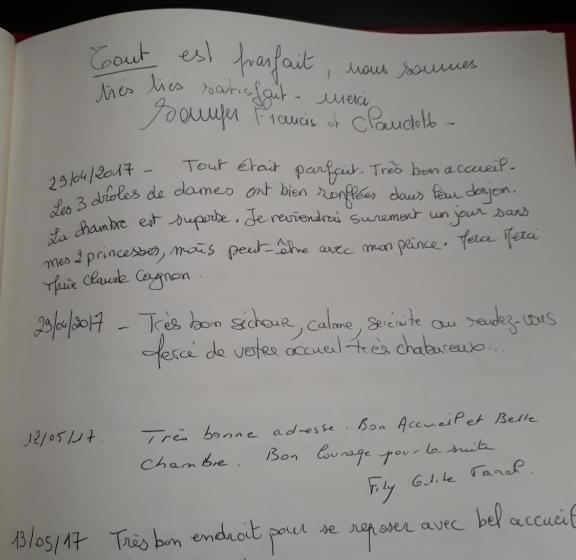 Tout est parfait, nous sommes
très très satisfait - merci
Francis et Claudette -
29/04/2017 - Tout était parfait. Très bon accueil.
Les 3 drôles de dames ont bien ronflées dans leur donjon.
La chambre est superbe. Je reviendrai surement un jour sans
mes 2 princesses, mais peut-être avec mon prince. Merci Merci
Marie Claude Cagnon.
29/04/2017 - Très bon séchour, calme, sérénité au rendez-vous.
Merci de votre accueil très chaleureux...
12/05/17. Très bonne adresse. Bon Accueil et Belle
Chambre. Bon Courage pour la suite.
13/05/17 Très bon endroit pour se reposer avec bel accueil